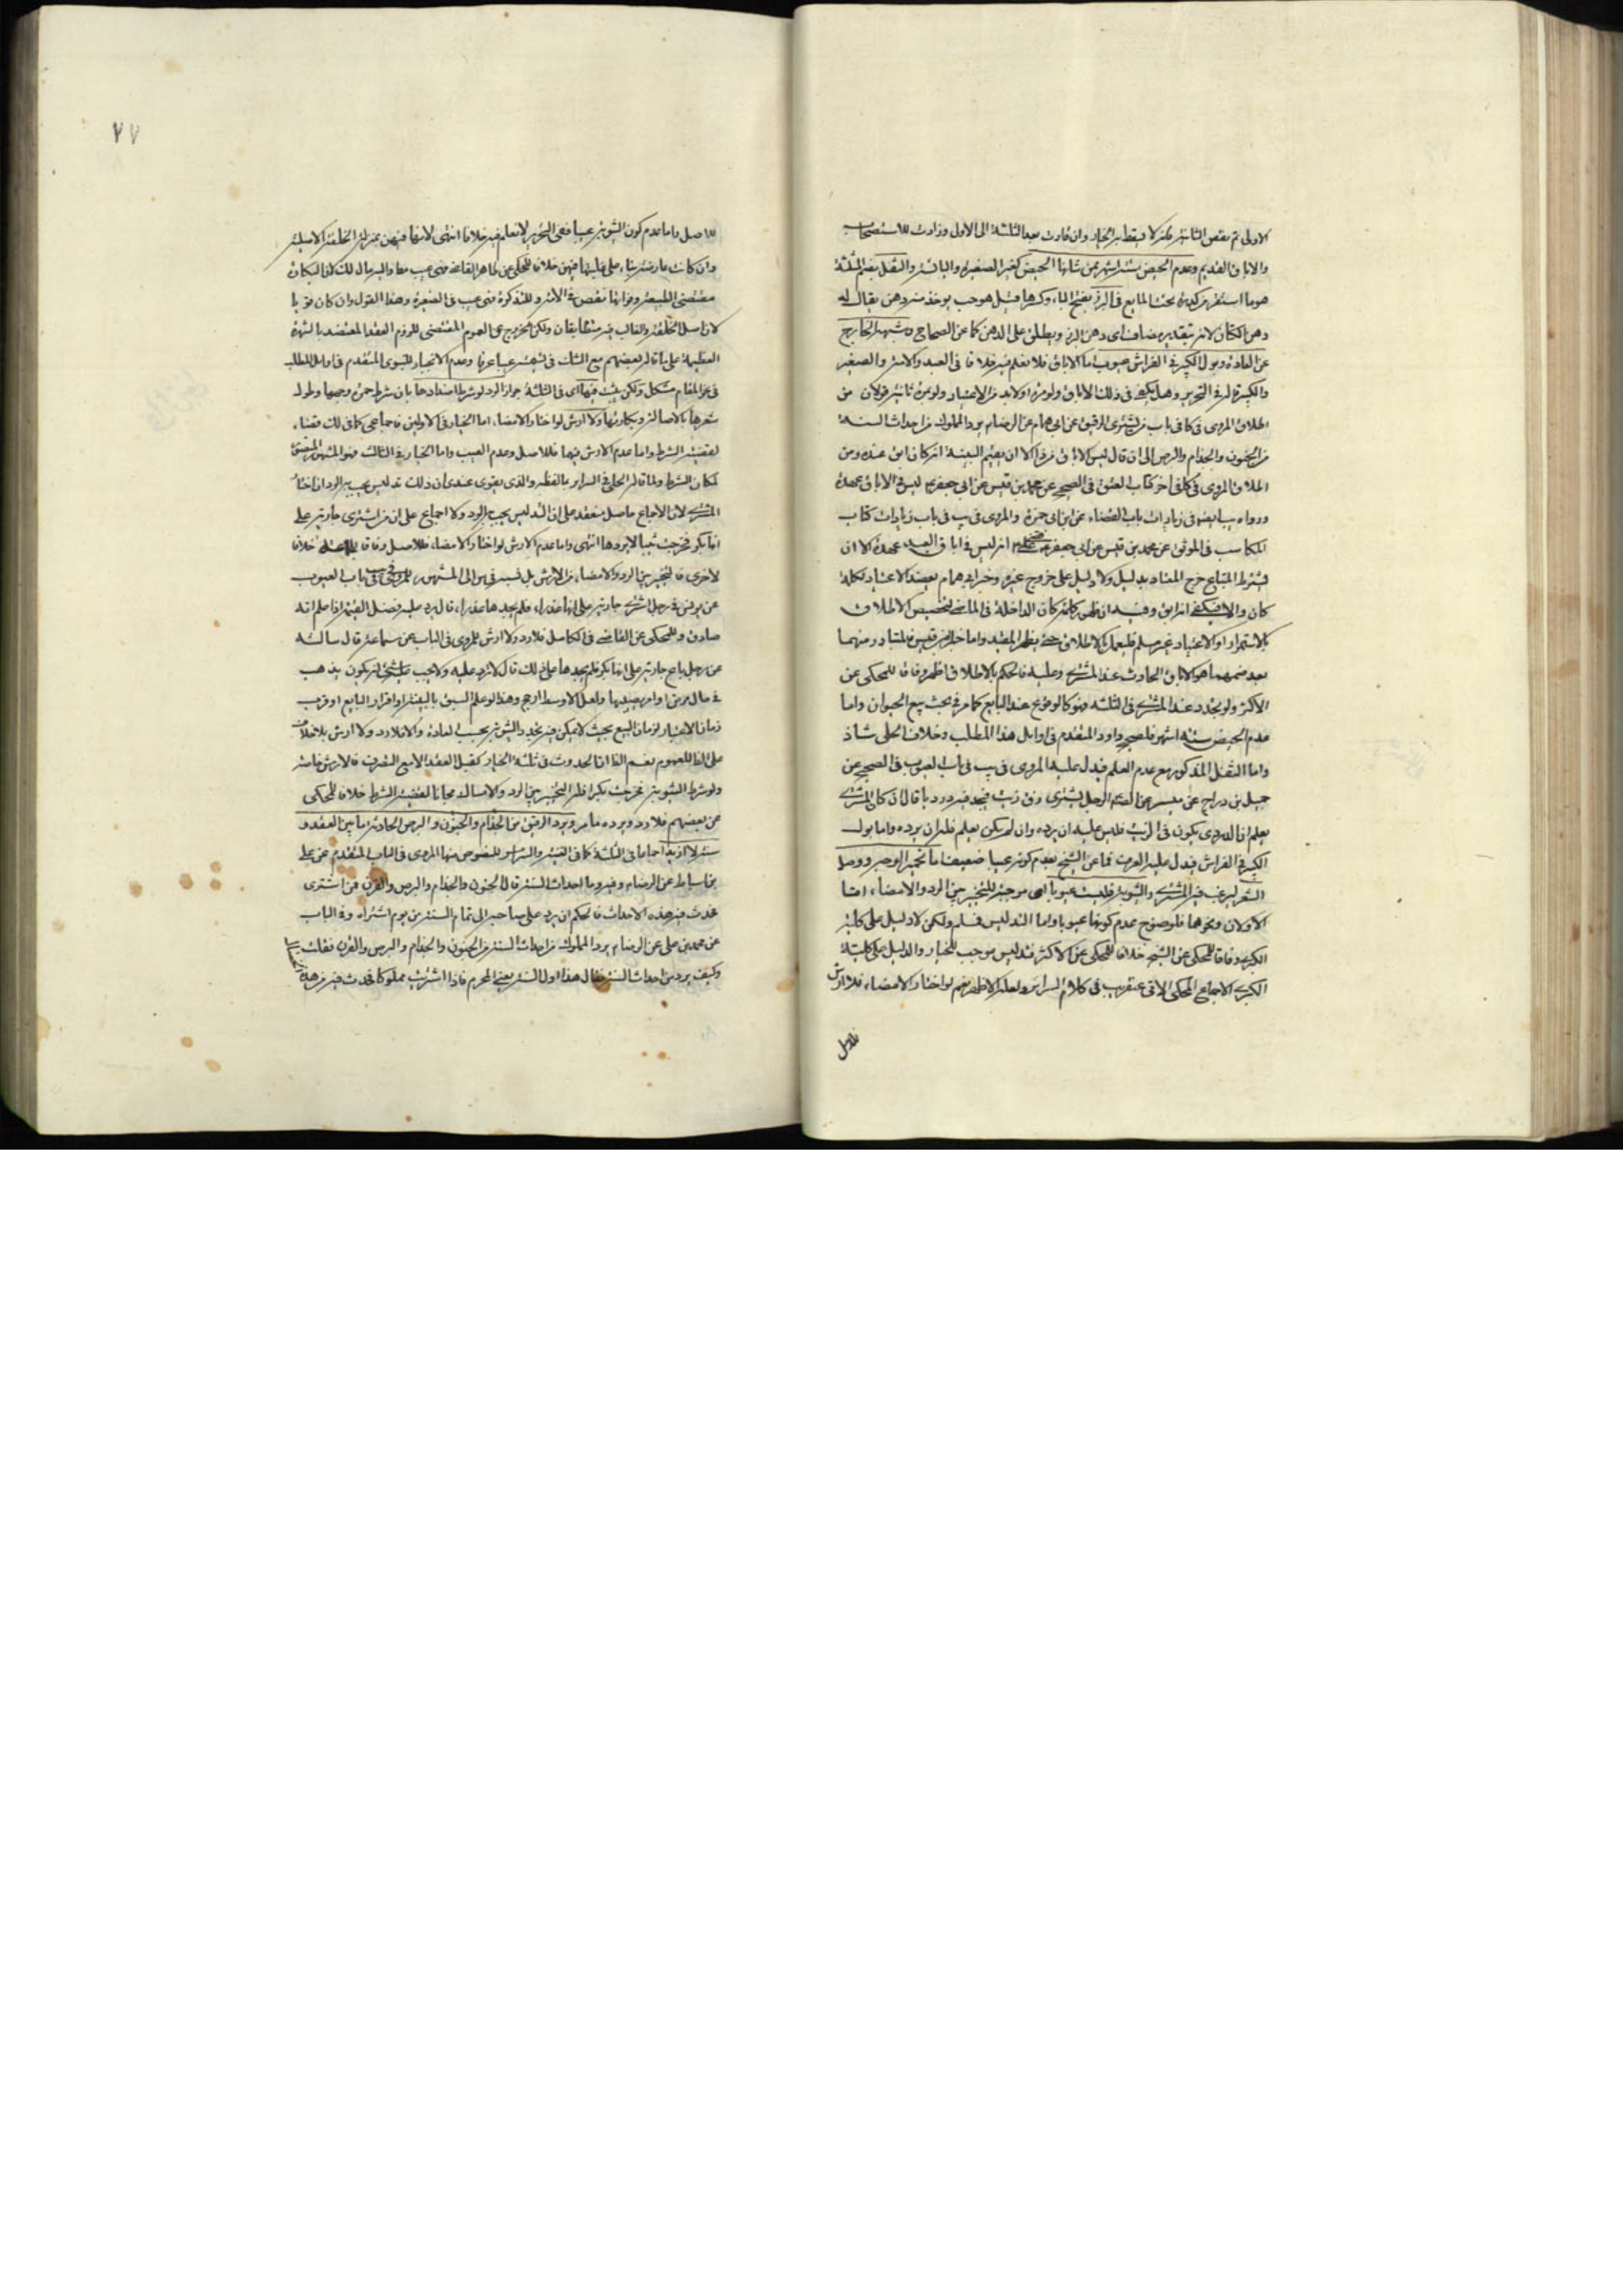 الاولى ثم نقص الثانية فكذلك لا يسقط به الخيار وان عادت بعد الثلثة الى الاول وزادت للاستصحاب
والاباق القديم وعدم الحيض ستة اشهر ممن شانها الحيض كغير الصغيرة واليائسة والثفل بضم المثلثة
هو ما استقر من كدرة تحت المايع في البزر بفتح الباء وكسرها قيل هو حب يوخذ منه دهن يقال له
دهن الكتان لانه بتقدير مضاف اى دهن البزر ويطلق على الدهن كما عن الصحاح وشبهه الخارج
عن العادة وبول الكبير في الفراش عيوب اما الاباق فلا نعلم فيه خلافا في العبد والامة والصغير
والكبير في التحرير وهل يكفى في ذلك الاباق ولو مرة او لابد من الاعتياد ولو مرة ثانية قولان من
اطلاق المروى في كا في باب من يشترى الرقيق عن ابى همام عن الرضا م يرد المملوك من احداث السنة
من الجنون والجذام والبرص الى ان قال ليس الاباق من ذا الا ان يقيم البينة انه كان ابق عنده ومن
اطلاق المروى في كا في اخر كتاب العتق في الصحيح عن محمد بن قيس عن ابى جعفر م ليس في الاباق عهدة
ورواه يب ايضا في زيادات باب القضاء عن ابن ابى حمزة والمروى في يب في باب زيادات كتاب
المكاسب في الموثق عن محمد بن قيس عن ابى جعفر م انه ليس في اباق العبد عهدة الا ان
يشترط المبتاع خرج المعتاد بدليل ولا دليل على خروج غيره وخبر ابى همام يعضد الاعتياد لكلمة
كان والا فيكفى انه ابق وفيه ان ظهور كلمة كان الداخلة في الماضى لتخصيص الاطلاق
بالاستمرار او الاعتياد غير مسلم فليعمل بالاطلاق حتى يظهر المقيد واما خبر ابن قيس فالمتبادر منهما
بعد ضمهما هو الاباق الحادث عند المشترى وعليه فالحكم بالاطلاق اظهر وفاقا للمحكى عن
الاكثر ولو تجدد عند المشترى في الثلثة فهو كالوقوع عند البايع كما مر في بحث بيع الحيوان واما
عدم الحيض ستة اشهر فلصحيح داود المتقدم في اوايل هذا المطلب وخلاف الحلى شاذ
واما الثفل المذكور مع عدم العلم فيدل عليه المروى في يب في باب العيوب في الصحيح عن
جميل بن دراج عن ميسر عن الصادق م الرجل يشترى زق زيت فيجد فيه درديا قال ان كان المشترى
يعلم ان الدردى يكون في الزيت فليس عليه ان يرده وان لم يكن يعلم فله ان يرده واما بول
الكبير في الفراش فيدل عليه العرف فما عن الشيخ بعدم كونه عيبا ضعيف اما تحمير الوجه ووصل
الشعر ليرغب فيه المشترى والثيوبة فليست عيوبا اى موجبة للتخيير بين الرد والامضاء اما
الاولان ونحوهما فلوضوح عدم كونها عيوبا واما التدليس فسلم ولكن لا دليل على كلية
الكبرى وفاقا للمحكى عن الشيخ خلافا للمحكى عن الاكثر فتدليس موجب للخيار والدليل على كلية
الكبرى الاجماع المحكى الاتى عنقريب في كلام السراير ولعله الاظهر نعم لو اختار الامضاء فلا ارش
للاصل
٧٧
للاصل واما عدم كون الثيوبة عيبا ففى التحرير لا نعلم فيه خلافا انتهى لانها فيهن بمنزلة الخلقة الاصلية
وان كانت عارضة بناء على غلبتها فيهن خلافا للمحكى عن ظاهر القاضى فهى عيب مطلقا واليه مال لك لان البكارة
مقتضى الطبيعة وفواتها نقص في الامة وللتذكرة فهى عيب في الصغيرة وهذا القول وان كان قويا
لان اصل الخلقة والغالب فيه متطابقان ولكن الخروج عن العموم المقتضى للزوم العقد المعتضد بالشهرة
العظيمة على ما قاله بعضهم مع الشك في تسميته عيبا عرفا وعدم الانجبار للنبوى المتقدم في اوايل المطلب
في هذا المقام مشكل ولكن يثبت فيها اى في الثلثة جواز الرد لو شرط اضدادها بان شرط حمرة وجهها وطول
شعرها بالاصالة وبكارتها ولا ارش لو اختار الامضاء اما الخيار في الاولين فاجماعى كما في لك قضاء
لقضية الشرط واما عدم الارش فيهما فللاصل وعدم العيب واما الخيار في الثالث فهو المشهور المنصور
لمكان الشرط ولما قاله الحلى في السراير ما لفظه والذى يقوى عندى ان ذلك تدليس يجب به الرد ان اختار
المشترى لان الاجماع حاصل منعقد على ان التدليس يجب به الرد ولا اجماع على ان من اشترى جارية على
انها بكر فخرجت ثيبا لا يردها انتهى واما عدم الارش لو اختار الامضاء فللاصل وفاقا لجماعة خلافا
لاخرى فالتخيير بين الرد والامضاء مع الارش بل نسبه في س الى المشهور للمروى في يب في باب العيوب
عن يونس في رجل اشترى جارية على انها عذراء فلم يجدها عذراء قال يرد عليه فضل القيمة اذا علم انه
صادق وللمحكى عن القاضى في الكامل فلا رد ولا ارش للمروى في الباب عن سماعة قال سالته
عن رجل باع جارية على انها بكر فلم يجدها على ذلك قال لا ترد عليه ولا يجب عليه شىء انه يكون يذهب
في حال مرض او امر يصيبها ولعل الاوسط ارجح وهذا لو علم السبق بالبينة او اقرار البايع او قرب
زمان الاختبار لزمان البيع بحيث لا يمكن فيه تجدد الثيوبة بحسب العادة والا فلا رد ولا ارش بلا خلاف
على الظ للعموم نعم الظ ان الحدوث في ثلثة الخيار كقبل العقد الا مع التصرف فالارش خاصة
ولو شرط الثيوبة فخرجت بكرا فله التخيير بين الرد والامساك مجانا لقضية الشرط خلافا للمحكى
عن بعضهم فلا رد ويرده ما مر ويرد الرقيق من الجذام والجنون والبرص الحادثة ما بين العقد و
سنة لا ازيد اجماعا في الثلثة كما في الغنية والسراير للنصوص منها المروى في الباب المتقدم عن على
بن اسباط عن الرضا م وفيه وما احداث السنة قال الجنون والجذام والبرص والقرن فمن اشترى
فحدث فيه هذه الاحداث فالحكم ان يرد على صاحبه الى تمام السنة من يوم اشتراه وفي الباب
عن محمد بن على عن الرضا م يرد المملوك من احداث السنة من الجنون والجذام والبرص والقرن فقلت
وكيف يرد من احداث السنة فقال هذا اول السنة يعنى المحرم فاذا اشتريت مملوكا فحدث فيه من هذه